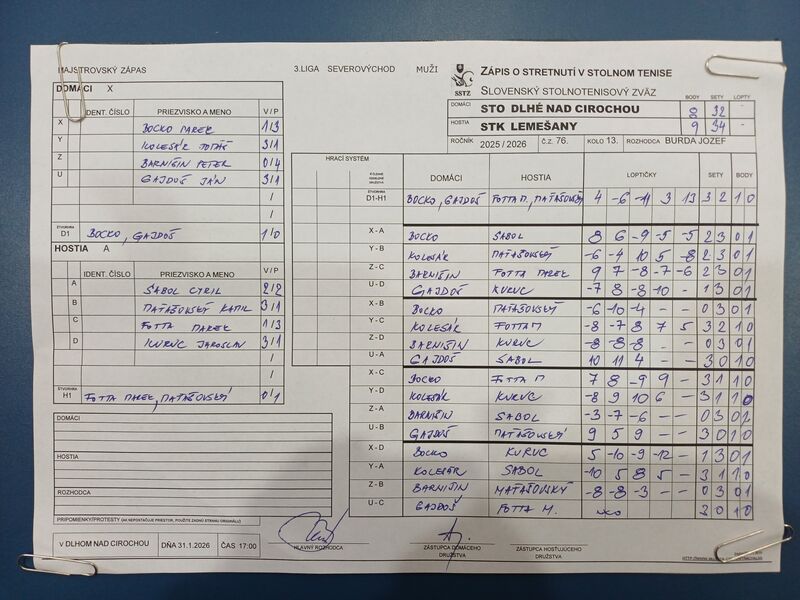 MAJSTROVSKÝ ZÁPAS
3.LIGA SEVEROVÝCHOD MUŽI
SSTZ
ZÁPIS O STRETNUTÍ V STOLNOM TENISE
SLOVENSKÝ STOLNOTENISOVÝ ZVÄZ
BODY SETY LOPTY
DOMÁCI STO DLHÉ NAD CIROCHOU 8 32 -
HOSTIA STK LEMEŠANY 9 34 -
ROČNÍK 2025 / 2026 Č.Z. 76. KOLO 13. ROZHODCA BURDA JOZEF
DOMÁCI X
IDENT. ČÍSLO PRIEZVISKO A MENO V / P
X BOCKO MAREK 1/3
Y KOLESÁR TOMÁŠ 3/1
Z BARNIŠIN PETER 0/4
U GAJDOŠ JÁN 3/1
/
ŠTVORHRA D1 BOCKO, GAJDOŠ 1/0
HOSTIA A
IDENT. ČÍSLO PRIEZVISKO A MENO V / P
A SABOL CYRIL 2/2
B MAŤAŠOVSKÝ KAMIL 3/1
C FOTTA MAREK 1/3
D KURUC JAROSLAV 3/1
/
/
ŠTVORHRA H1 FOTTA MAREK, MAŤAŠOVSKÝ 0/1
DOMÁCI
HOSTIA
ROZHODCA
PRIPOMIENKY/PROTESTY (AK NEPOSTAČUJE PRIESTOR, POUŽITE ZADNÚ STRANU ORIGINÁLU)
V DLHOM NAD CIROCHOU DŇA 31.1.2026 ČAS 17:00
HRACÍ SYSTÉM
DOMÁCI HOSTIA LOPTIČKY SETY BODY
D1-H1 BOCKO, GAJDOŠ FOTTA M, MAŤAŠOVSKÝ 4 -6 -11 3 13 3 2 1 0
X - A BOCKO SABOL 8 6 -9 -5 -5 2 3 0 1
Y - B KOLESÁR MAŤAŠOVSKÝ -6 -4 10 5 -8 2 3 0 1
Z - C BARNIŠIN FOTTA MAREK 9 7 -8 -7 -6 2 3 0 1
U - D GAJDOŠ KURUC -7 8 -8 -10 - 1 3 0 1
X - B BOCKO MAŤAŠOVSKÝ -6 -10 -4 - - 0 3 0 1
Y - C KOLESÁR FOTTA M -8 -7 8 7 5 3 2 1 0
Z - D BARNIŠIN KURUC -8 -8 -8 - - 0 3 0 1
U - A GAJDOŠ SABOL 10 11 4 - - 3 0 1 0
X - C BOCKO FOTTA M 7 8 -9 9 - 3 1 1 0
Y - D KOLESÁR KURUC -8 9 10 6 - 3 1 1 0
Z - A BARNIŠIN SABOL -3 -7 -6 - - 0 3 0 1
U - B GAJDOŠ MAŤAŠOVSKÝ 9 5 9 - - 3 0 1 0
X - D BOCKO KURUC 5 -10 -9 -12 - 1 3 0 1
Y - A KOLESÁR SABOL -10 5 8 5 - 3 1 1 0
Z - B BARNIŠIN MAŤAŠOVSKÝ -8 -8 -3 - - 0 3 0 1
U - C GAJDOŠ FOTTA M. WO 3 0 1 0
HLAVNÝ ROZHODCA
ZÁSTUPCA DOMÁCEHO DRUŽSTVA
ZÁSTUPCA HOSŤUJÚCEHO DRUŽSTVA